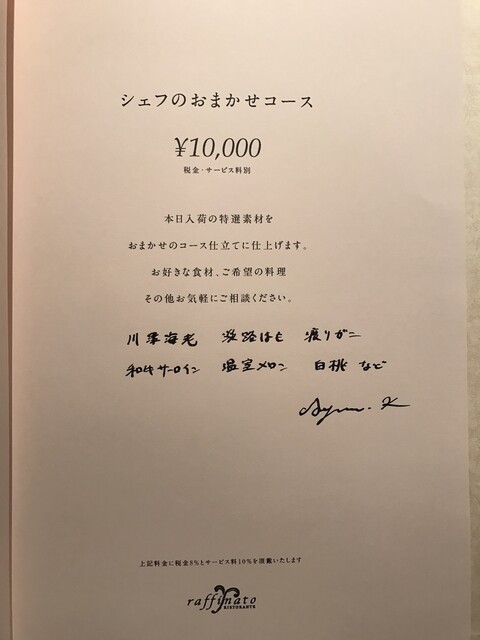 シェフのおまかせコース
¥10,000
税金・サービス料別
本日入荷の特選素材を
おまかせのコース仕立てに仕上げます。
お好きな食材、ご希望の料理
その他お気軽にご相談ください。
川津海老 淡路はも 渡りガニ
和牛サーロイン 温室メロン 白桃 など
上記料金に税金8%とサービス料10%を頂戴いたします
raffinato
RISTORANTE